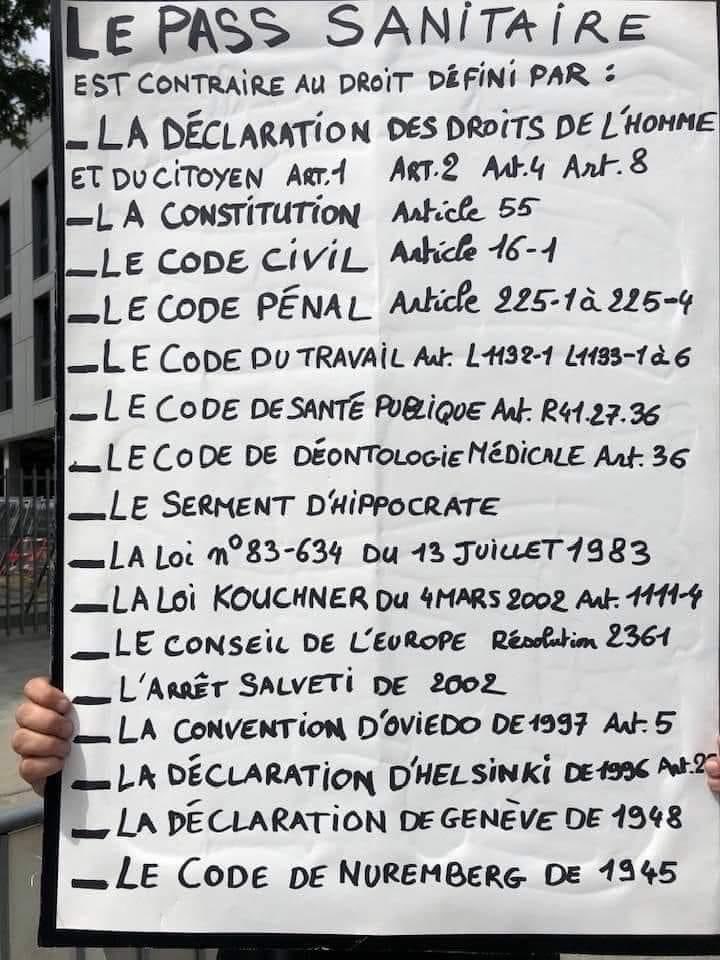 LE PASS SANITAIRE
EST CONTRAIRE AU DROIT DÉFINI PAR :
- LA DÉCLARATION DES DROITS DE L'HOMME
ET DU CITOYEN ART.1 ART.2 Art.4 Art.8
- LA CONSTITUTION Article 55
- LE CODE CIVIL Article 16-1
- LE CODE PÉNAL Article 225-1 à 225-4
- LE CODE DU TRAVAIL Art. L1132-1 L1133-1 à 6
- LE CODE DE SANTÉ PUBLIQUE Art. R41.27.36
- LE CODE DE DÉONTOLOGIE MÉDICALE Art.36
- LE SERMENT D'HIPPOCRATE
- LA Loi n°83-634 DU 13 JUILLET 1983
- LA Loi KOUCHNER DU 4 MARS 2002 Art. 1111-4
- LE CONSEIL DE L'EUROPE Résolution 2361
- L'ARRÊT SALVETI DE 2002
- LA CONVENTION D'OVIEDO DE 1997 Art.5
- LA DÉCLARATION D'HELSINKI DE 1996 Art.
- LA DÉCLARATION DE GENÈVE DE 1948
- LE CODE DE NUREMBERG DE 1945